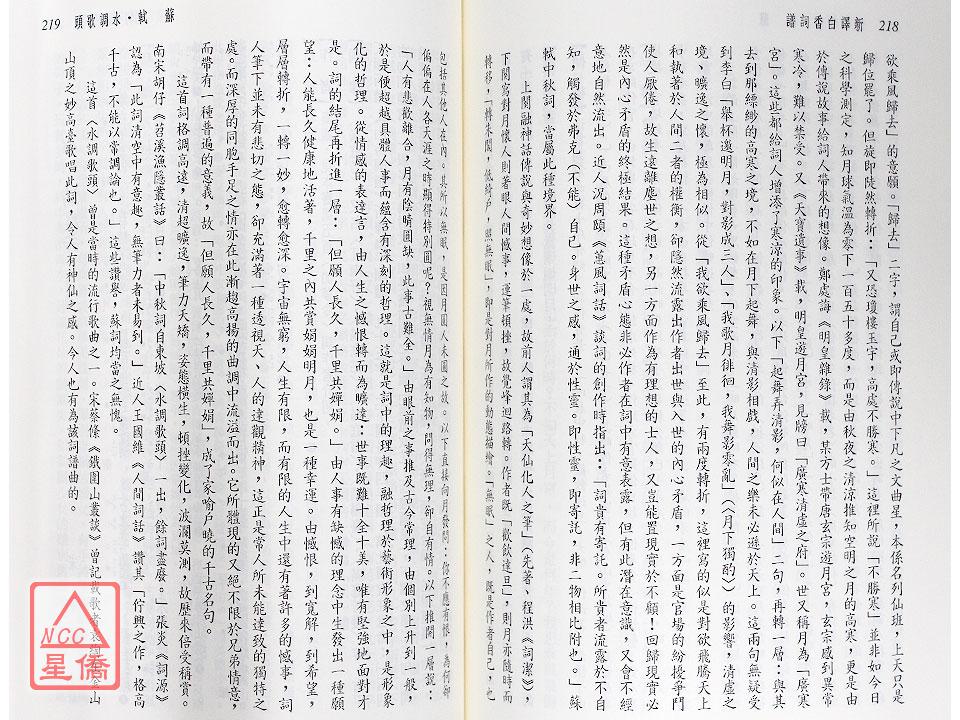 新譯白香詞譜 218
欲乘風歸去」的意願。「歸去」二字，謂自己或即傳說中下凡之文曲星，本係名列仙班，上天只是
歸位罷了。但旋即陡然轉折：「又恐瓊樓玉宇，高處不勝寒。」這裡所說「不勝寒」並非如今日
之科學測定，如月球氣溫為零下一百五十多度，而是由秋夜之清涼推知空明之月的高寒，更是由
於傳說故事給詞人帶來的想像。鄭處誨《明皇雜錄》載，某方士帶唐玄宗遊月宮，玄宗感到異常
寒冷，難以禁受。又《天寶遺事》載，明皇遊月宮，見牓曰「廣寒清虛之府」。世又稱月為「廣寒
宮」。這些都給詞人增添了寒涼的印象。以下「起舞弄清影，何似在人間」二句，再轉一層：與其
去到那縹緲的高寒之境，不如在月下起舞，與清影相戲，人間之樂未必遜於天上。這兩句無疑受
到李白「舉杯邀明月，對影成三人」、「我歌月徘徊，我舞影零亂」（〈月下獨酌〉）的影響，清虛之
境、曠逸之懷，極為相似。從「我欲乘風歸去」至此，有兩度轉折，這裡寫的似是對欲飛騰天上
和執著於人間二者的權衡，卻隱然流露出作者出世與入世的內心矛盾，一方面是官場的紛擾爭鬥
使人厭倦，故生遠離塵世之想，另一方面作為有理想的士人，又豈能置現實於不顧！回歸現實必
然是內心矛盾的終極結果。這種矛盾心態非必作者在詞中有意表露，但有此潛在意識，又會不經
意地自然流出。近人況周頤《蕙風詞話》談詞的創作時指出：「詞貴有寄託。所貴者流露於不自
知，觸發於弗克（不能）自己。身世之感，通於性靈。即性靈，即寄託，非二物相比附也。」蘇
軾中秋詞，當屬此種境界。
上闋融神話傳說與奇妙想像於一處，故前人謂其為「天仙化人之筆」（先著、程洪《詞潔》），
下闋寫對月懷人則著眼人間憾事，運筆頓挫，故覺峰迴路轉。作者既「歡飲達旦」，則月亦隨時而
轉移，「轉朱閣，低綺戶，照無眠」，即是對月所作的動態描繪。「無眠」之人，既是作者自己，也
蘇　軾・水調歌頭 219
包括其他人在內。其所以無眠，是因月圓人未圓之故。以下直接向月發問：你不應有恨，為何卻
偏偏在人各天涯之時顯得特別圓呢？視無情月為有知物，問得無理，卻自有情。以下推開一層說：
「人有悲歡離合，月有陰晴圓缺，此事古難全。」由眼前之事推及古今常理，由個別上升到一般，
於是便超越具體人事而蘊含有深刻的哲理。這就是詞中的理趣，融哲理於藝術形象之中，是形象
化的哲理。從情感的表達言，由人生之憾恨轉而為曠達：世事既難十全十美，唯有堅強地面對才
是。詞的結尾再折進一層：「但願人長久，千里共嬋娟。」由人事有缺憾的理念中生發出一種願
望：人能長久健康地活著，千里之內共賞娟娟明月，也是一種幸運。由憾恨，到寬解，到希望，
層層轉折，一轉一妙，愈轉愈深。宇宙無窮，人生有限，而有限的人生中還有著許多的憾事，詞
人筆下並未有悲切之態，卻充滿著一種透視天、人的達觀精神，這正是常人所未能達致的獨特之
處。而深厚的同胞手足之情亦在此漸趨高揚的曲調中流溢而出。它所體現的又絕不限於兄弟情意，
而帶有一種普遍的意義，故「但願人長久，千里共嬋娟」，成了家喻戶曉的千古名句。
這首詞格調高遠，清超曠逸，筆力夭矯，姿態橫生，頓挫變化，波瀾莫測，故歷來倍受稱賞。
南宋胡仔《苕溪漁隱叢話》曰：「中秋詞自東坡〈水調歌頭〉一出，餘詞盡廢。」張炎《詞源》
認為「此詞清空中有意趣，無筆力者未易到。」近人王國維《人間詞話》讚其「佇興之作，格高
千古，不能以常調論也。」這些讚譽，蘇詞均當之無愧。
這首〈水調歌頭〉曾是當時的流行歌曲之一。宋蔡絛《鐵圍山叢談》曾記載歌者袁綯登金山
山頂之妙高臺歌唱此詞，令人有神仙之感。今人也有為該詞譜曲的。
NCC
星僑